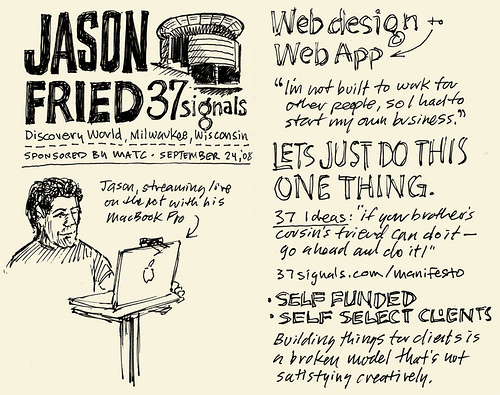 JASON
FRIED 37signals
Discovery World, Milwaukee, Wisconsin
SPONSORED BY MATC · SEPTEMBER 24, '08
Jason, streaming live
on the dot with his
MacBook Pro
Web design →to
Web App
"I'm not built to work for
other people, so I had to
start my own business."
LETS JUST DO THIS
ONE THING.
37 Ideas: "if your brother's
cousin's friend can do it —
go ahead and do it!"
37signals.com/manifesto
• SELF FUNDED
• SELF SELECT CLIENTS
Building things for clients is
a broken model that's not
satisfying creatively.